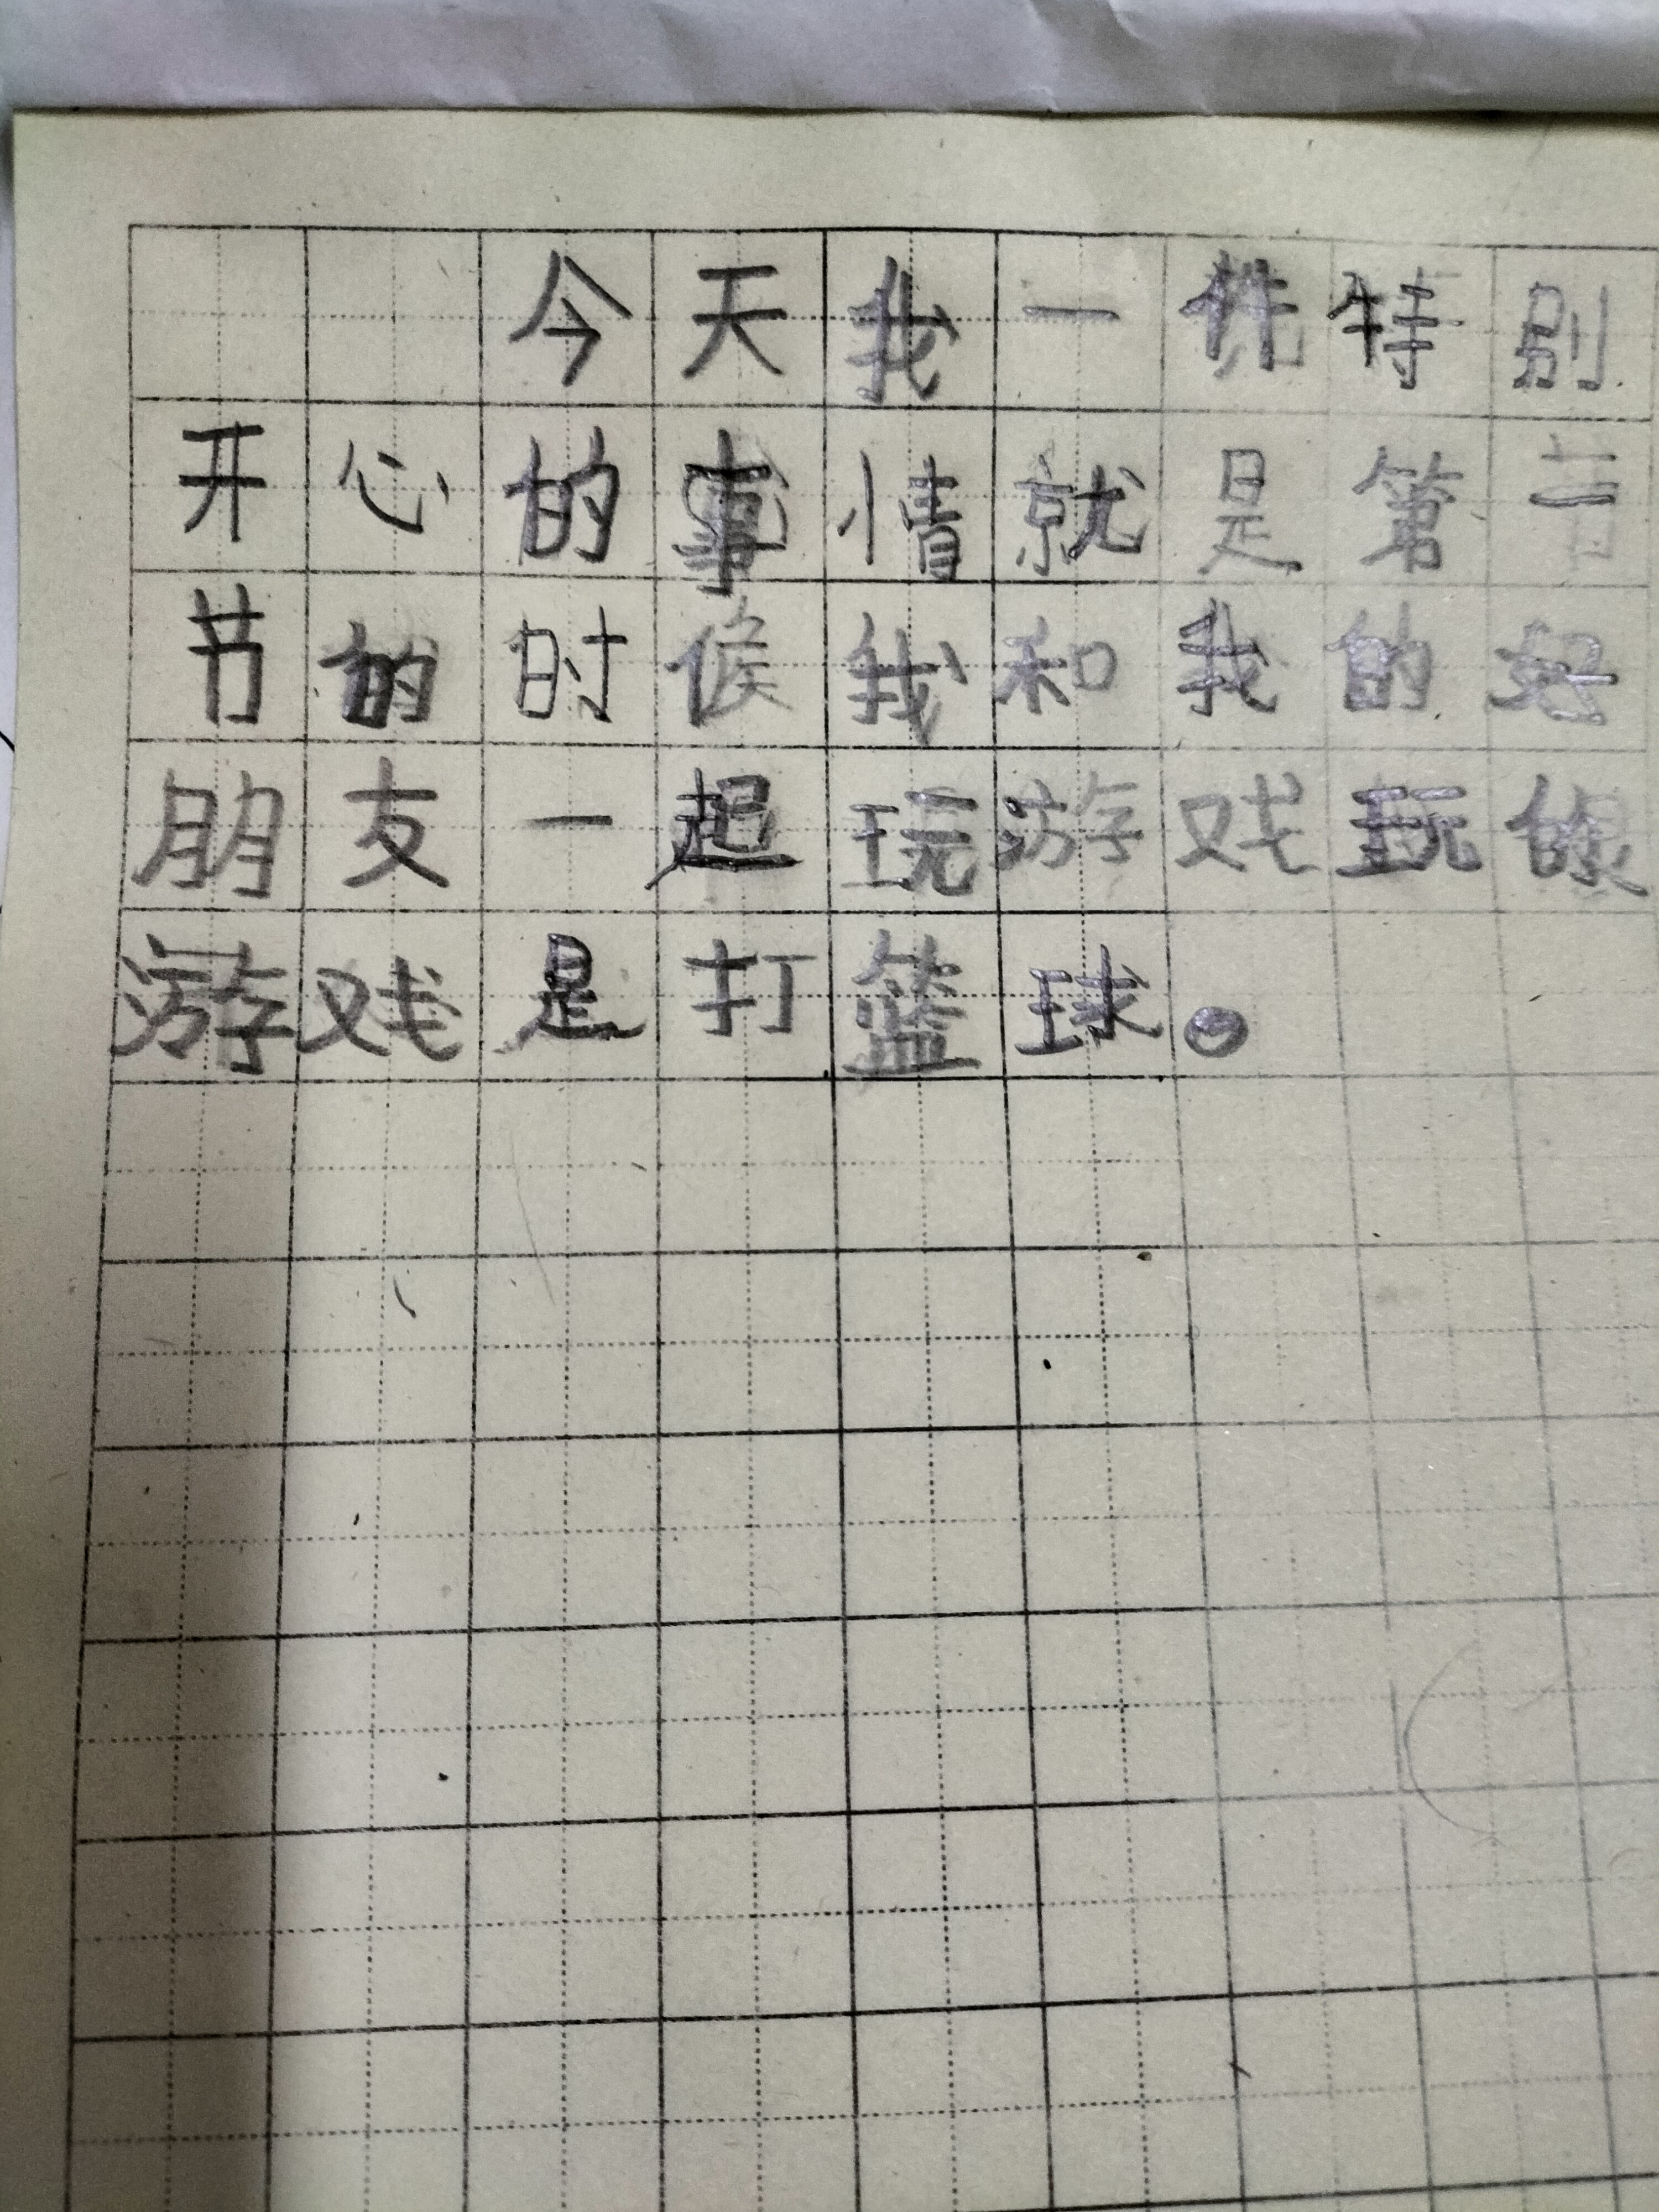 今天我一件特别
开心的事情就是第二
节的时候我和我的好
朋友一起玩游戏玩的
游戏是打篮球。